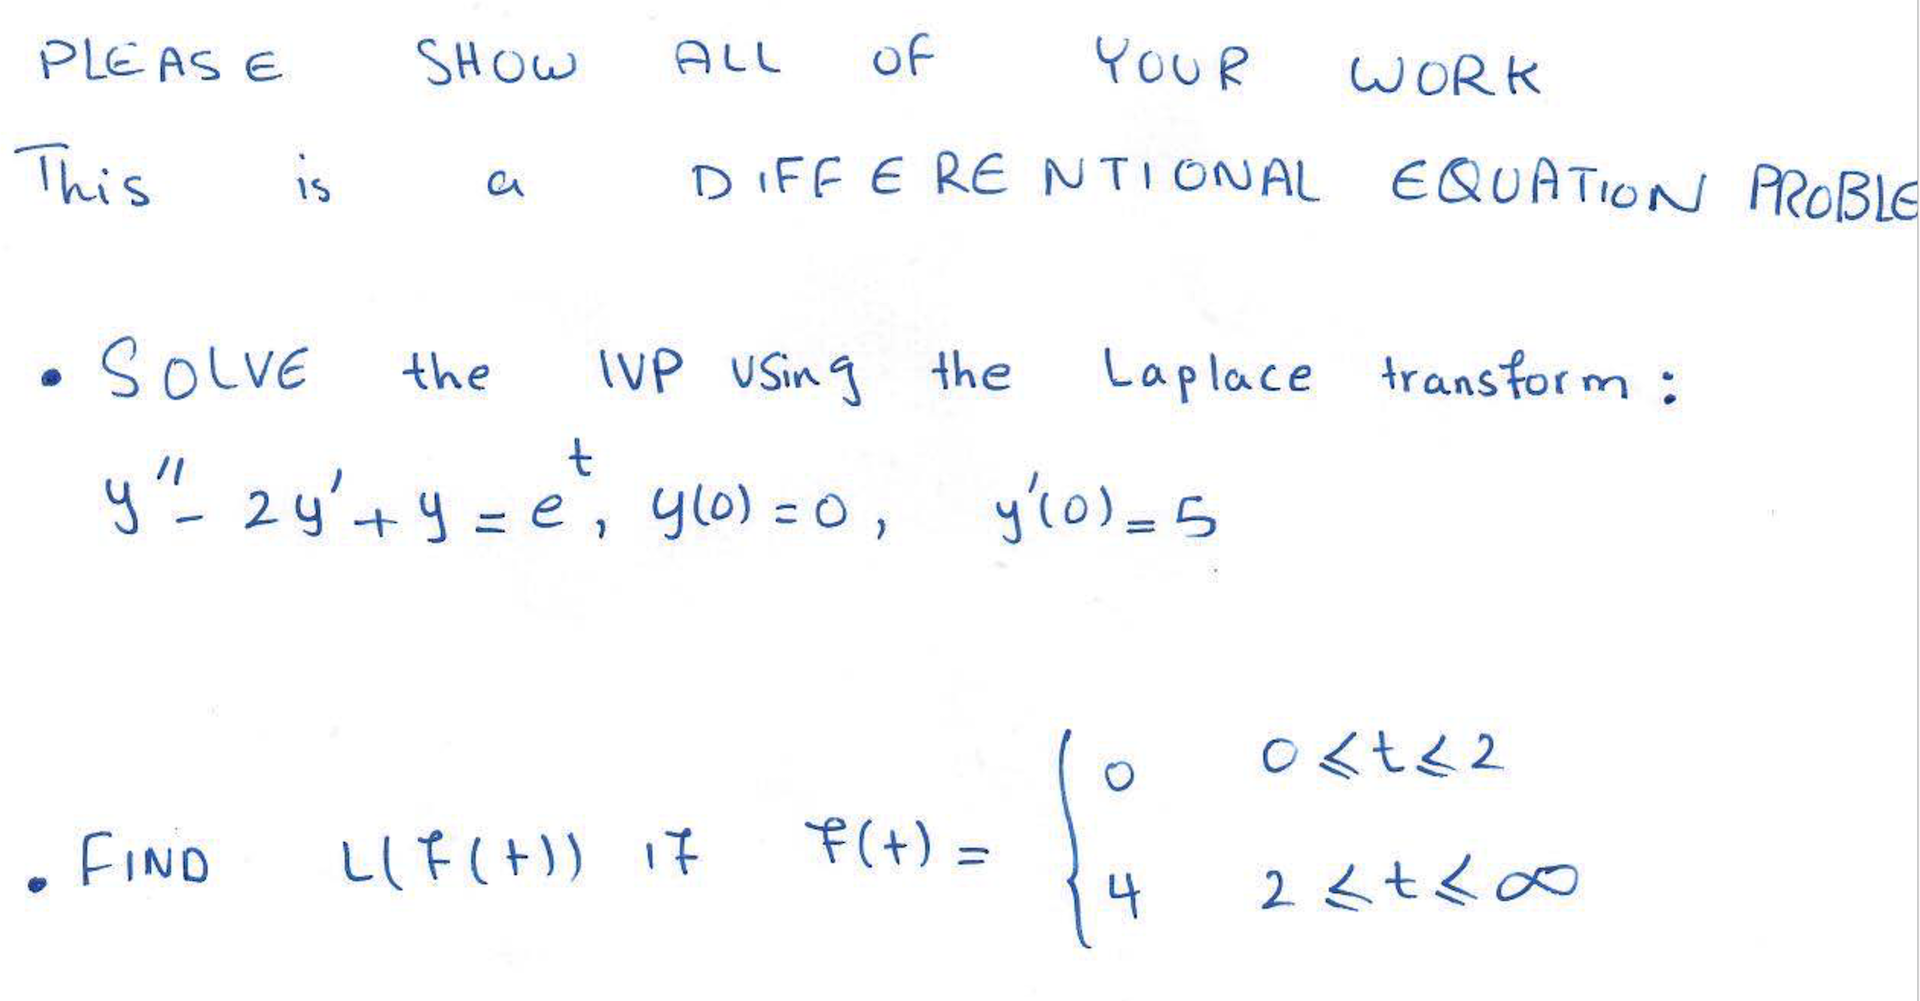 PLEASE SHOW ALL OF YOUR WORK
This is a DIFFERENTIONAL EQUATION PROBLE
• SOLVE the IVP using the Laplace transform :
y'' - 2y' + y = e^t, y(0) = 0, y'(0) = 5
• FIND L(f(t)) if f(t) = { 0 0 ⩽ t ⩽ 2
4 2 ⩽ t ⩽ ∞